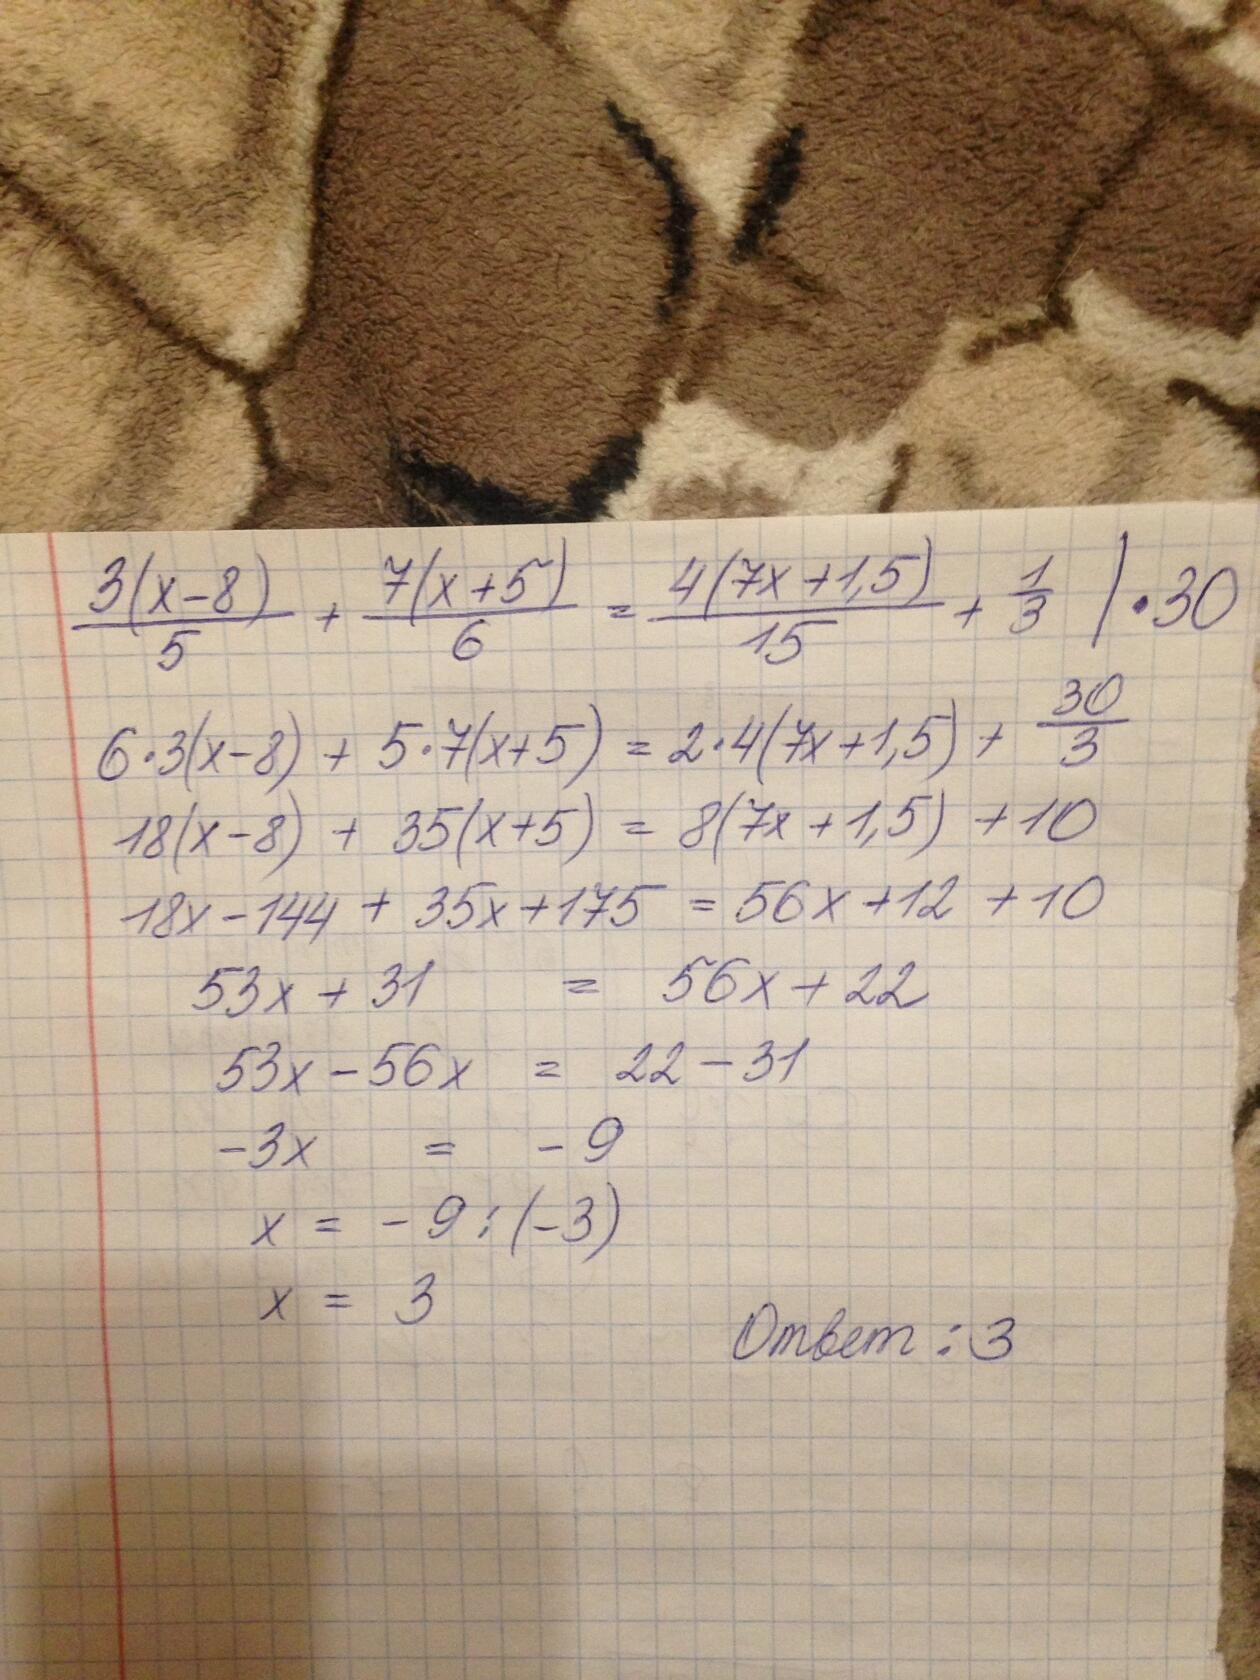 3(x-8)/5 + 7(x+5)/6 = 4(7x+1,5)/15 + 1/3 | •30
6•3(x-8) + 5•7(x+5) = 2•4(7x+1,5) + 30/3
18(x-8) + 35(x+5) = 8(7x+1,5) +10
18x-144 + 35x+175 = 56x+12 +10
53x+31 = 56x+22
53x-56x = 22-31
-3x = -9
x = -9:(-3)
x = 3
Ответ: 3